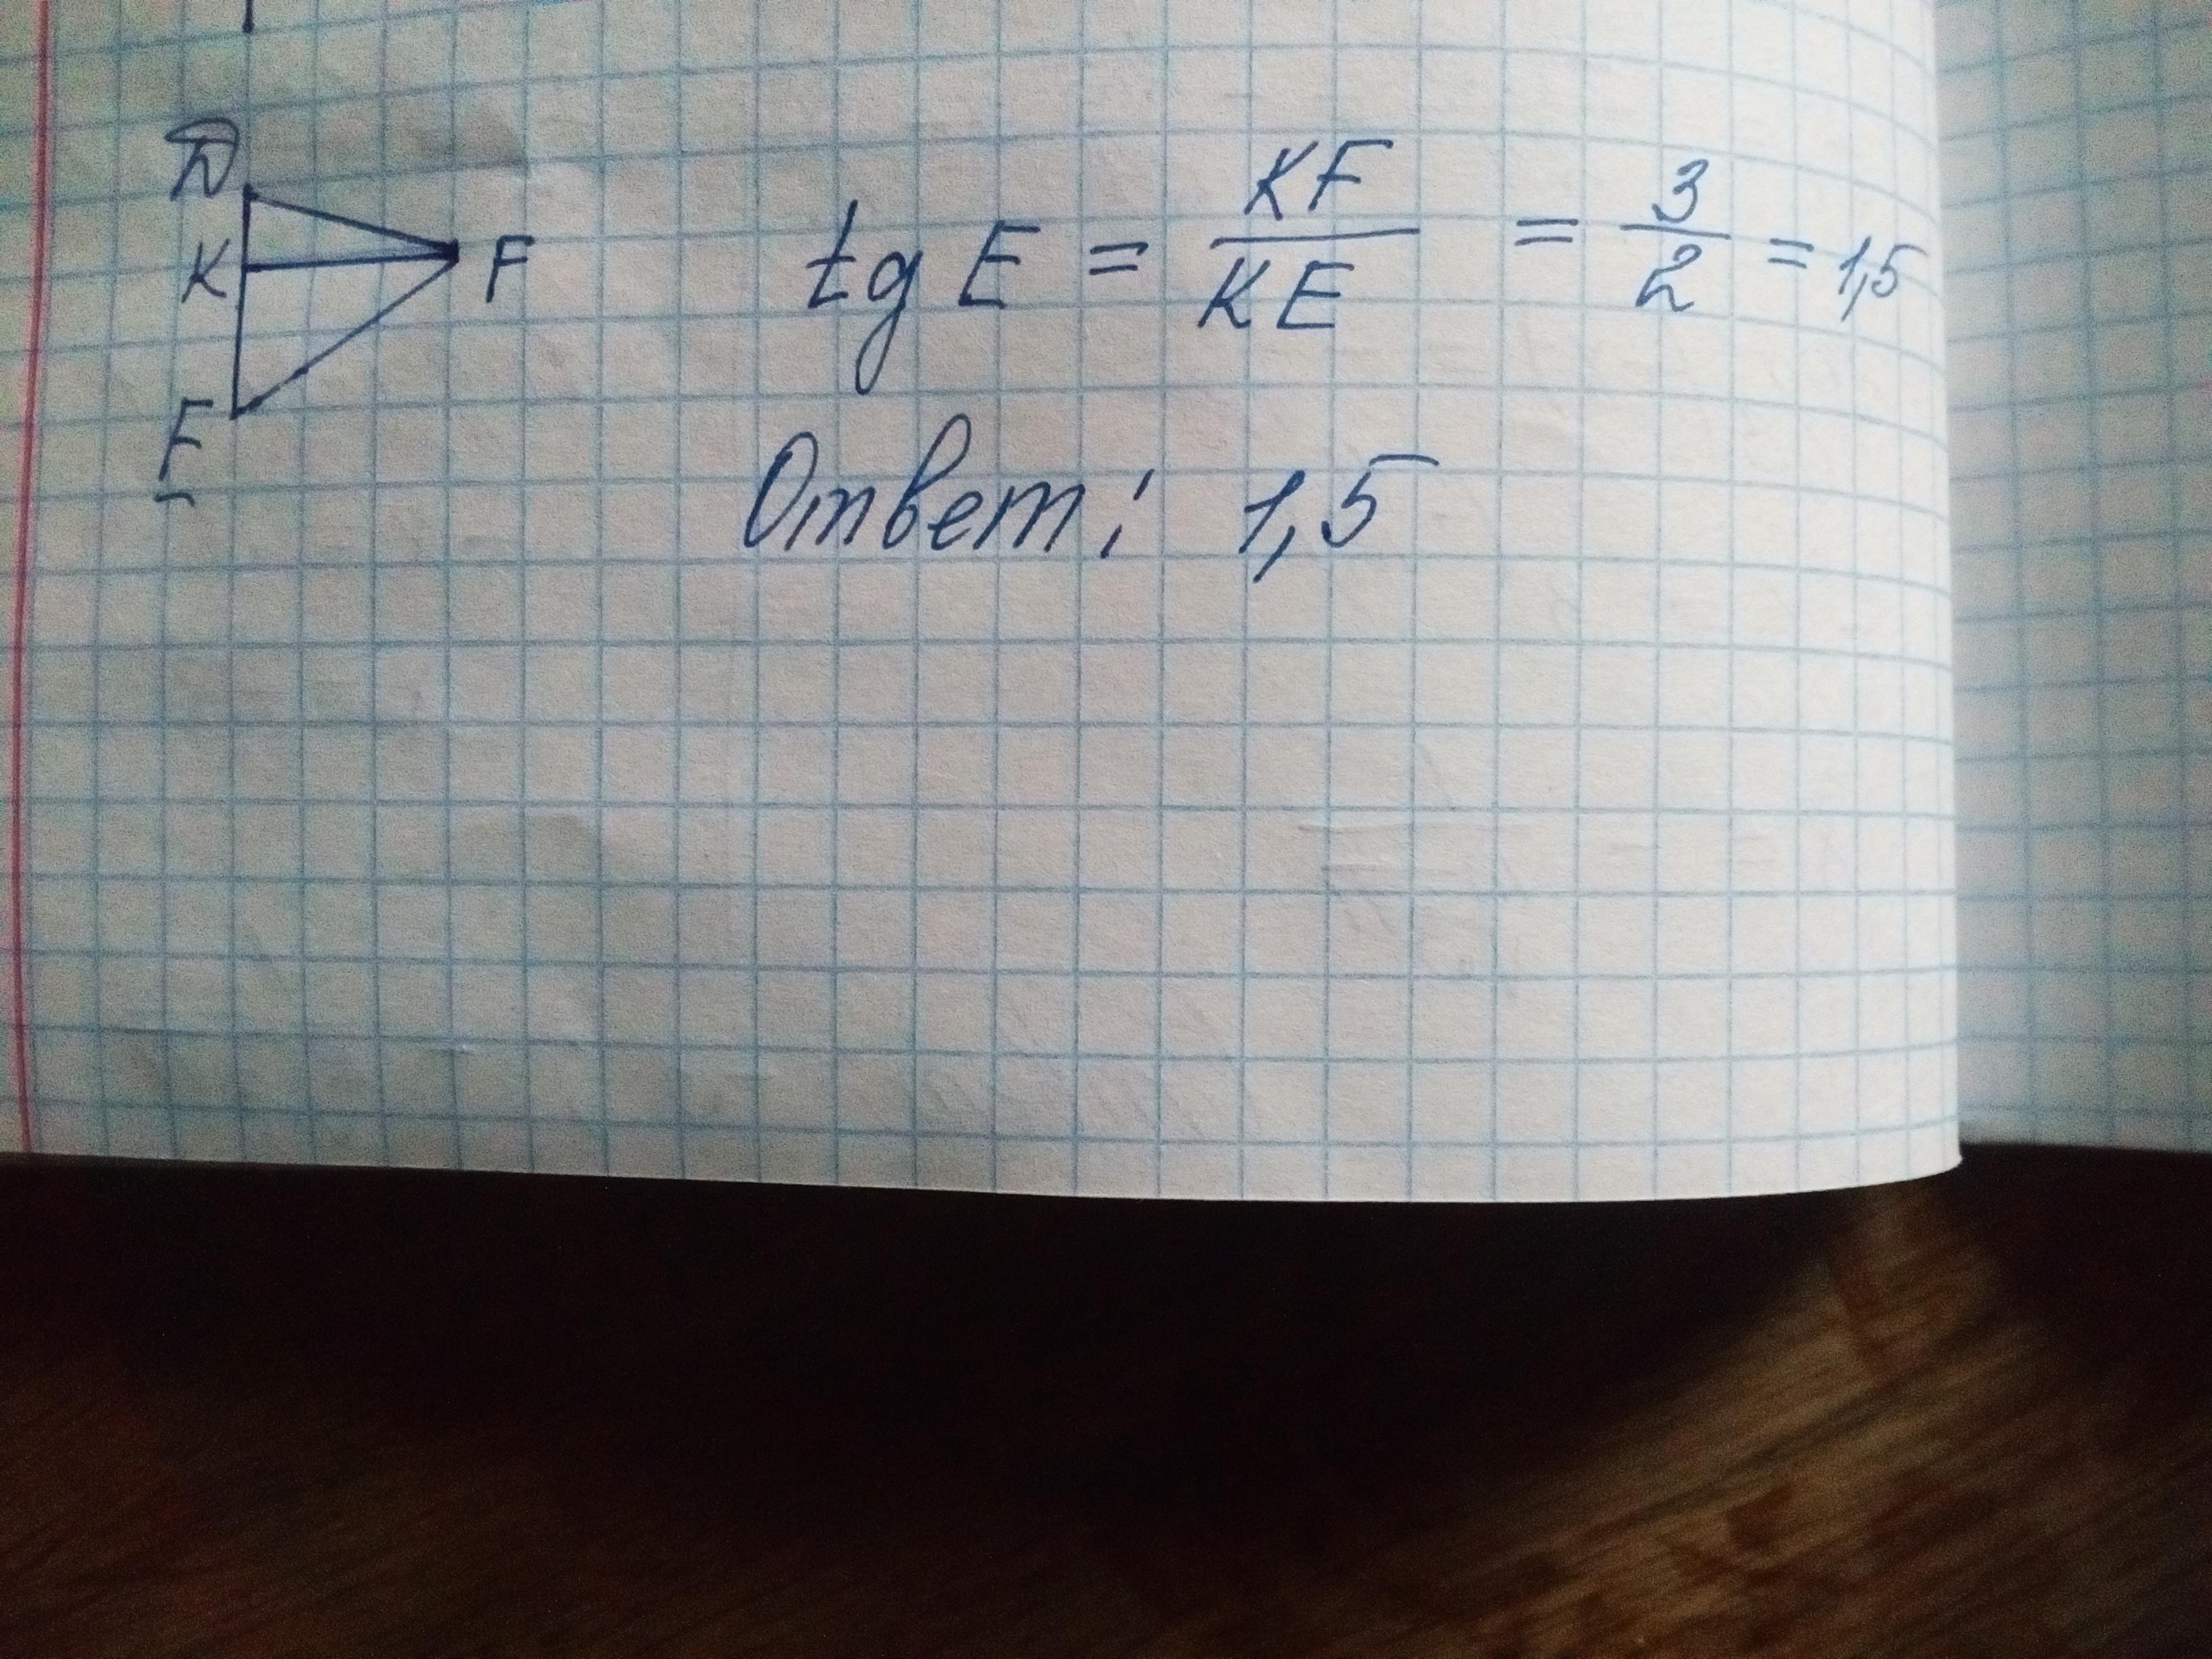 D
K F
E
tg E = KF/KE = 3/2 = 1,5
Ответ: 1,5